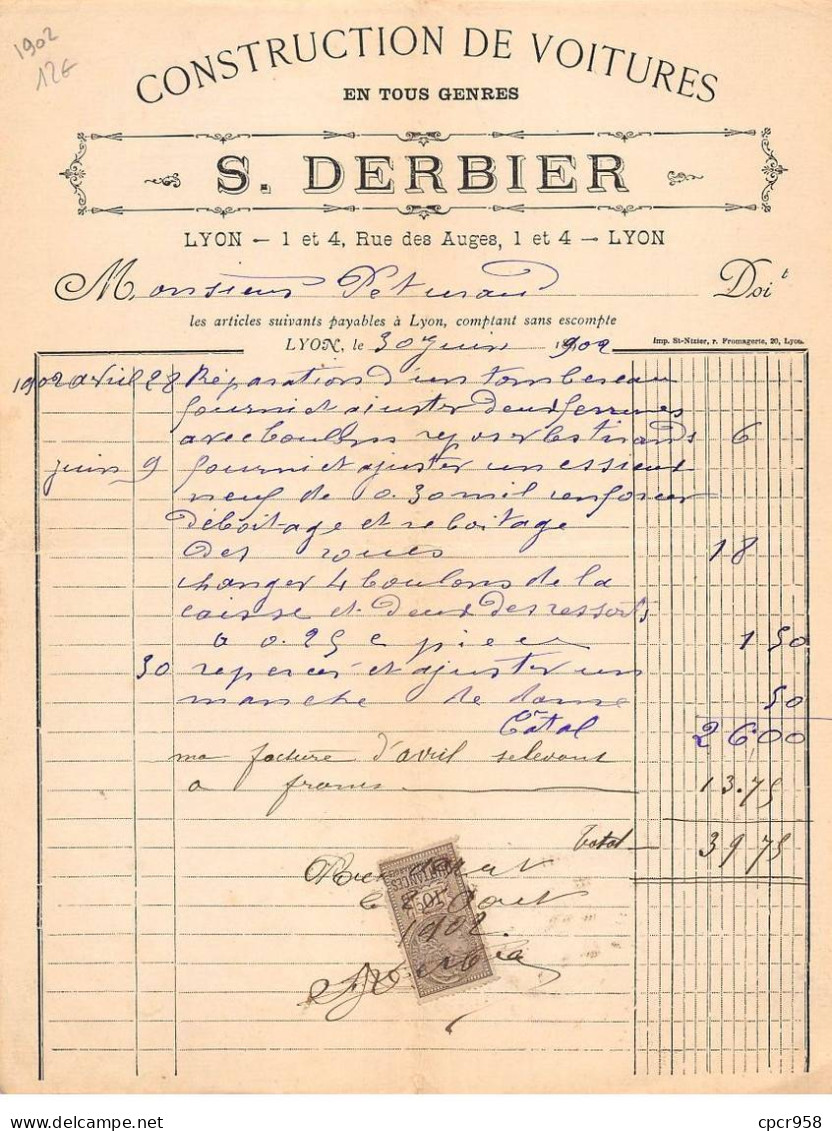 1902
12€
CONSTRUCTION DE VOITURES
EN TOUS GENRES
S. DERBIER
LYON - 1 et 4, Rue des Auges, 1 et 4 - LYON
Monsieur Doit
les articles suivants payables à Lyon, comptant sans escompte
LYON, le 30 juin 1902
Imp. St-Nizier, r. Fromagerie, 20, Lyon.
1902 avril 28 Réparation d'un tombereau
fourni et ajuster deux ferrures
avec boulons reposer les tirands 6
juin 9 fourni et ajuster un essieux
neuf de 0.30 mil renforcer
déboitage et reboitage
des roues 18
changer 4 boulons de la
caisse et deux des ressorts
a 0.25 c piece 1 50
30 repercer et ajuster un
manche de 50
Total 26 00
ma facture d'avril selevant
a francs 13.75
Total 39 75
Pour
le 2 Aout
1902
QUITTANCES
10c
S Derbier
cpcr958